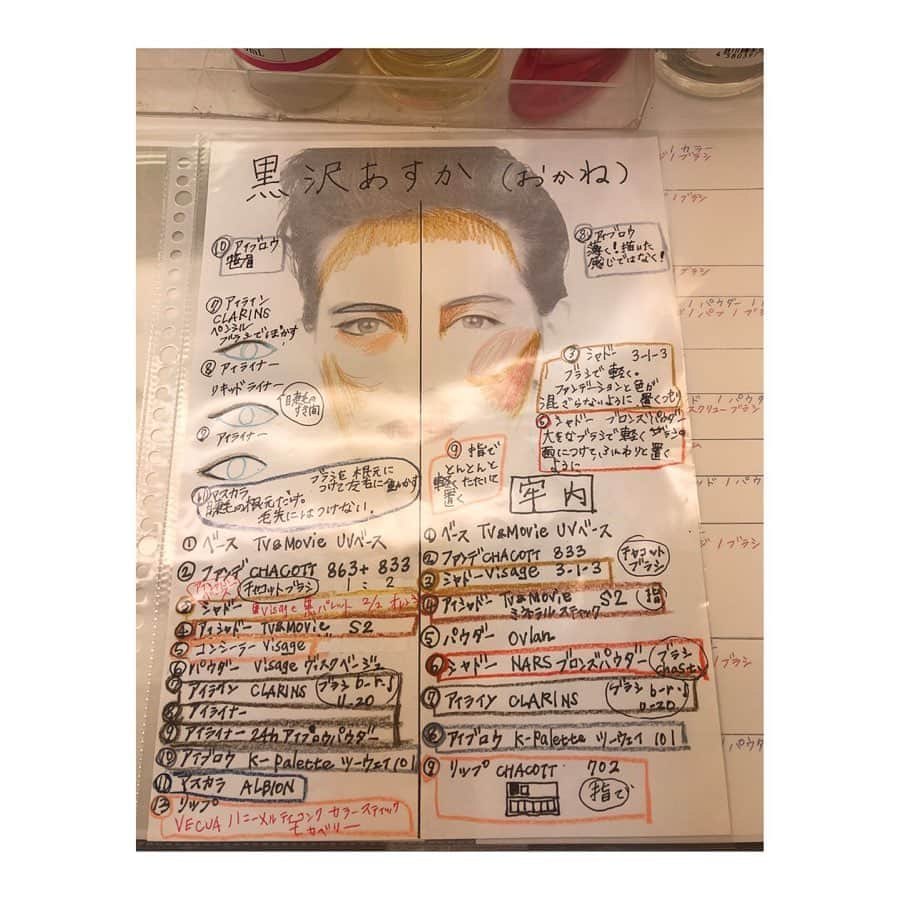 黒沢あすか (おかね)
⑩ アイブロウ
⑦ アイライン
CLARINS
ペンシル
ブラシでぼかす
⑧ アイライナー
リキッドライナー
睫毛の
すき間
⑨ アイライナー
⑪ マスカラ
睫毛の根元だけ。
毛先にはつけない。
ブラシを根元に
つけて左右に動かす
① ベース TV&MOVIE UVベース
② ファンデCHACOTT 863+833
チャコットブラシ 1:2
③ シャドー Visage 黒パレット
④ アイシャドー TV&MOVIE S2
⑤ コンシーラー Visage
⑥ パウダー Visage
⑦ アイライン CLARINS ブラシ b-r-s
U-20
⑧ アイライナー
⑨ アイライナー 24h アイブロウパウダー
⑩ アイブロウ K-Palette ツーウェイ101
⑪ マスカラ ALBION
⑬ リップ
VECUA ハニーメルティコンク カラースティック
モカベリー
⑧ アイブロウ
薄く!描いた
感じではなく!
③ シャドー 3-1-3
ブラシで軽く。
ファンデーションと色が
混ざらないように 置く
⑥ シャドー ブロンズパウダー
大きなブラシで軽く ブラシの
面につけて、ふんわりと置く
ように
⑨ 指で
とんとんと
軽く
置く
牢内
① ベース TV&MOVIE UVベース
② ファンデCHACOTT 833
チャコット
ブラシ
③ シャドー Visage 3-1-3
④ アイシャドー TV&MOVIE S2 指
ミネラルスティック
⑤ パウダー Ovlan
⑥ シャドー NARS ブロンズパウダー ブラシ
⑦ アイライン CLARINS ブラシ b-r-s
U-20
⑧ アイブロウ K-Palette ツーウェイ101
⑨ リップ CHACOTT 702
指で
カラー
ブラシ
ブラシ
ブラシ
パウダー
パフ
ブラシ
パウダー
スクリューブラシ
パウダ
ブラシ
ブラシ
パウダ
ブラシ